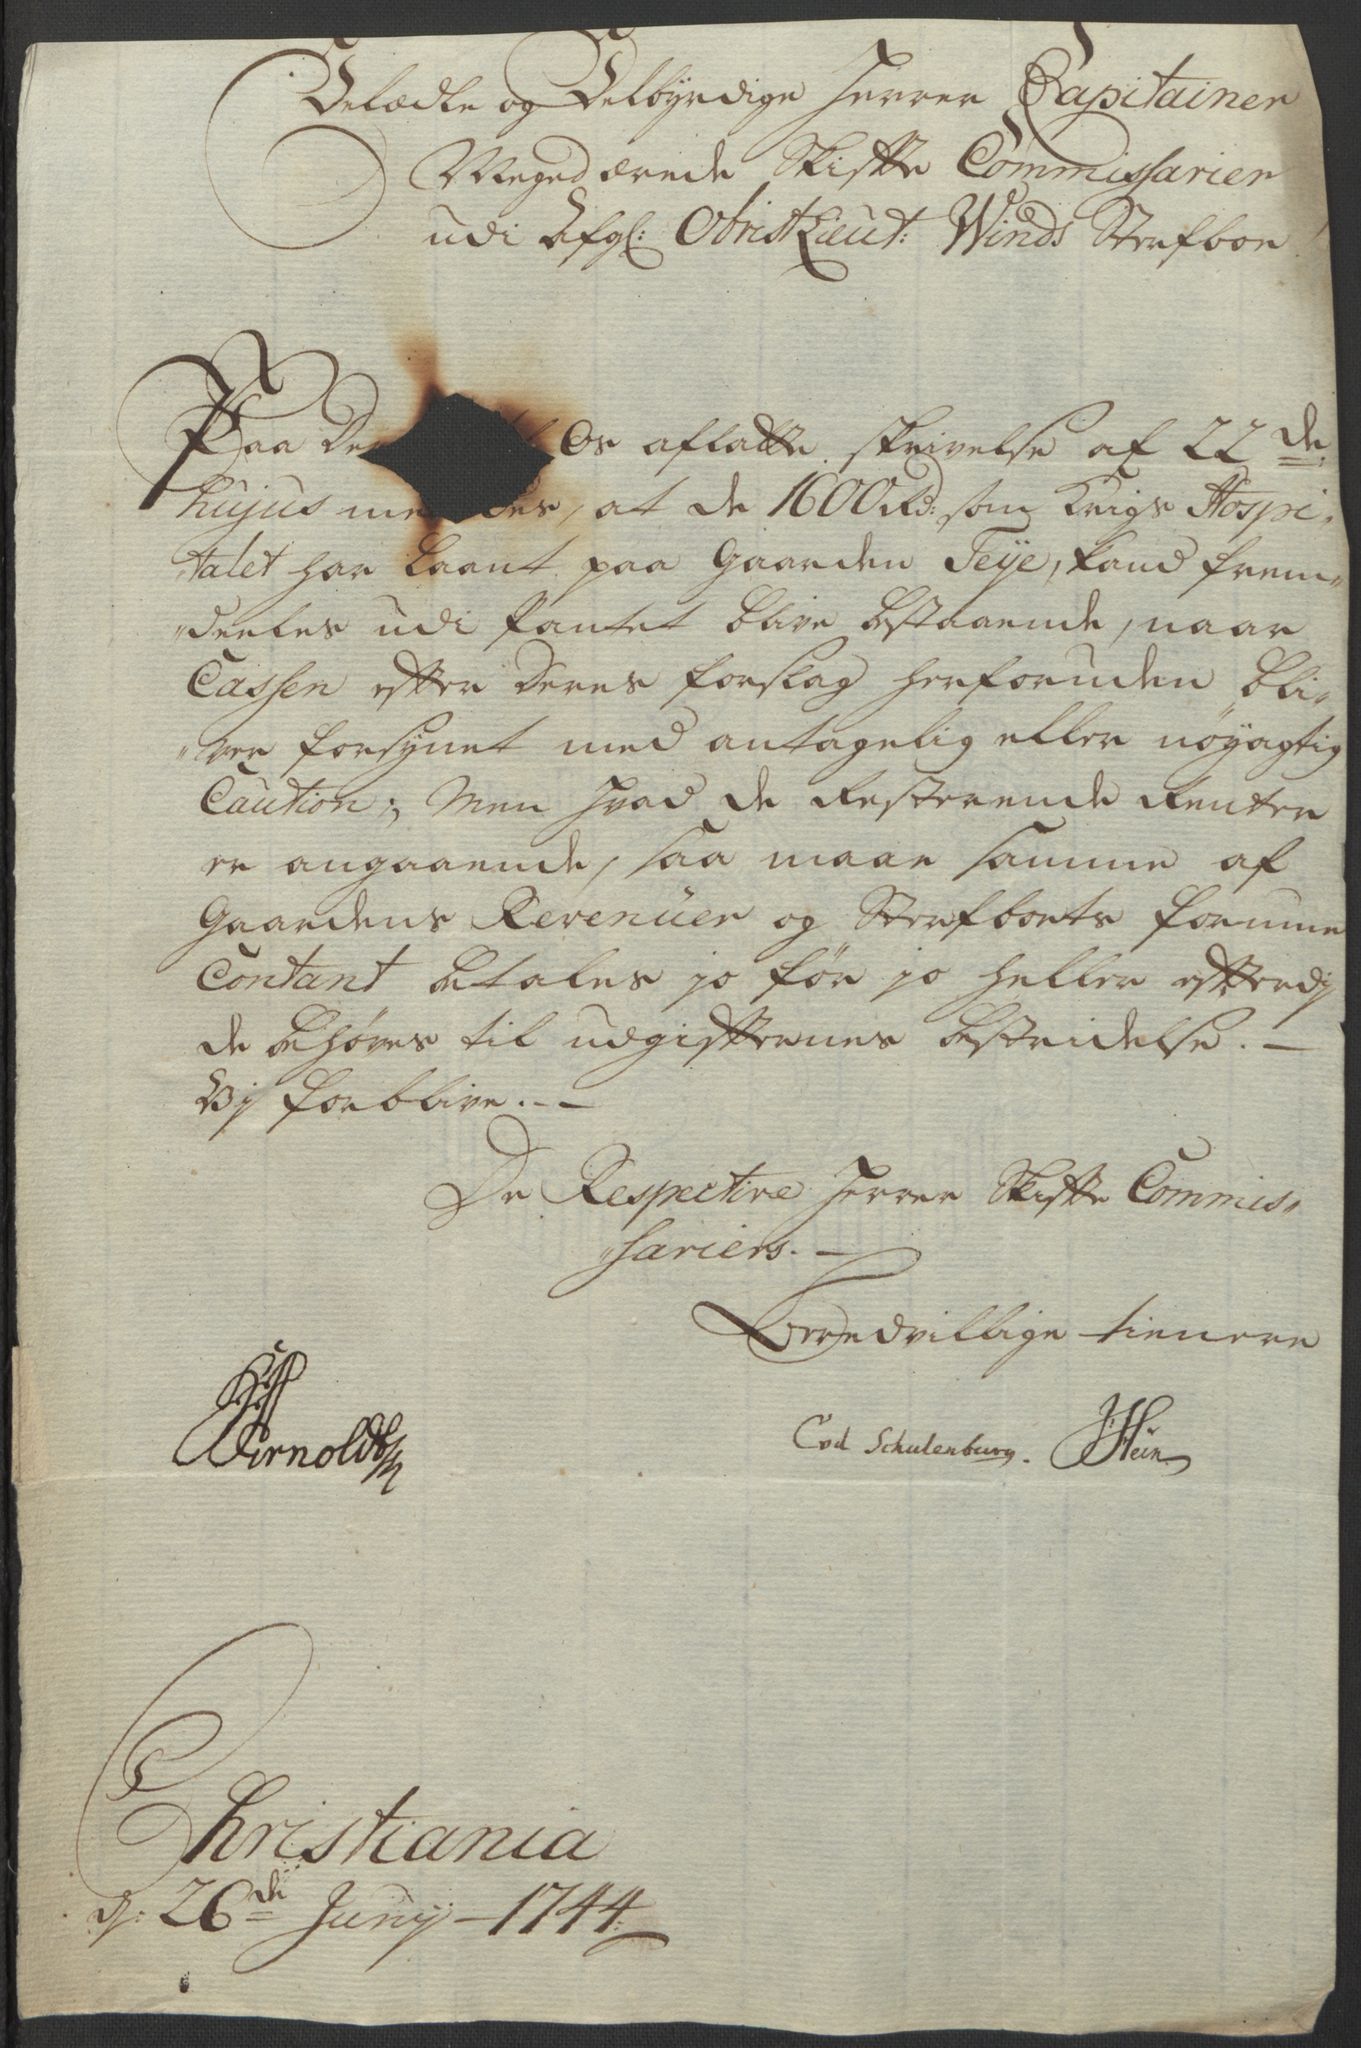 Velædle og Velbyrdige Herrer Capitainer
Meget ærede Skiffte Commissarier
udi Afgl: ObristLieut: Winds Sterfboe
Paa Der Os aflatte skrivelse af 22de
hujus , at de 1600 Rd: som Krigs Hospi„
„talet har laant paa Gaarden Teÿe, kand frem„
„deeles udi Pantet blive bestaaende, naar
Cassen efter Deres forslag herforuden bli„
„ver forsynet med antagelig eller nøyagtig
Caution; Men hvad de Resterende Renter
er angaaende, saa maae samme af
Gaardens Revenüer og Sterfboets formue
Contant betales jo før jo heller efterdj
de behøves til udgifternes bestridelse. —
Vj forblive. —
De Respective Herrer Skiffte Commis„
„sariers. —
Beredvillige tienere
Arnoldt
Cvd Schulenburg. Hein
Christiania
d: 26de Junÿ 1744.